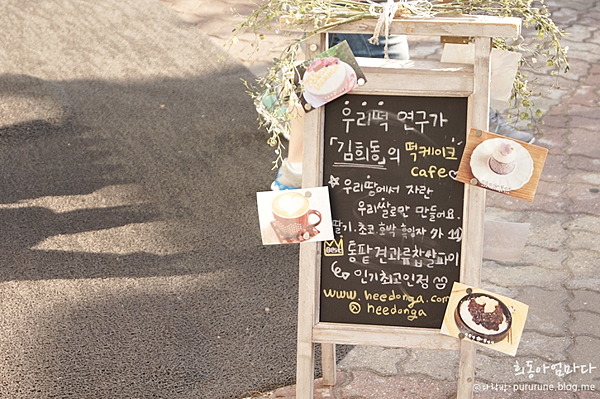 우리떡 연구가
「김희동」의 떡케이크
cafe
☆우리땅에서 자란
우리쌀로만 만들어요.
딸기.초코.호박.흑임자 각 1호
Best 통팥견과류찹쌀파이
인기최고인정
www.heedonga.com
@ heedonga
희동아엄마다
pururune.blog.me